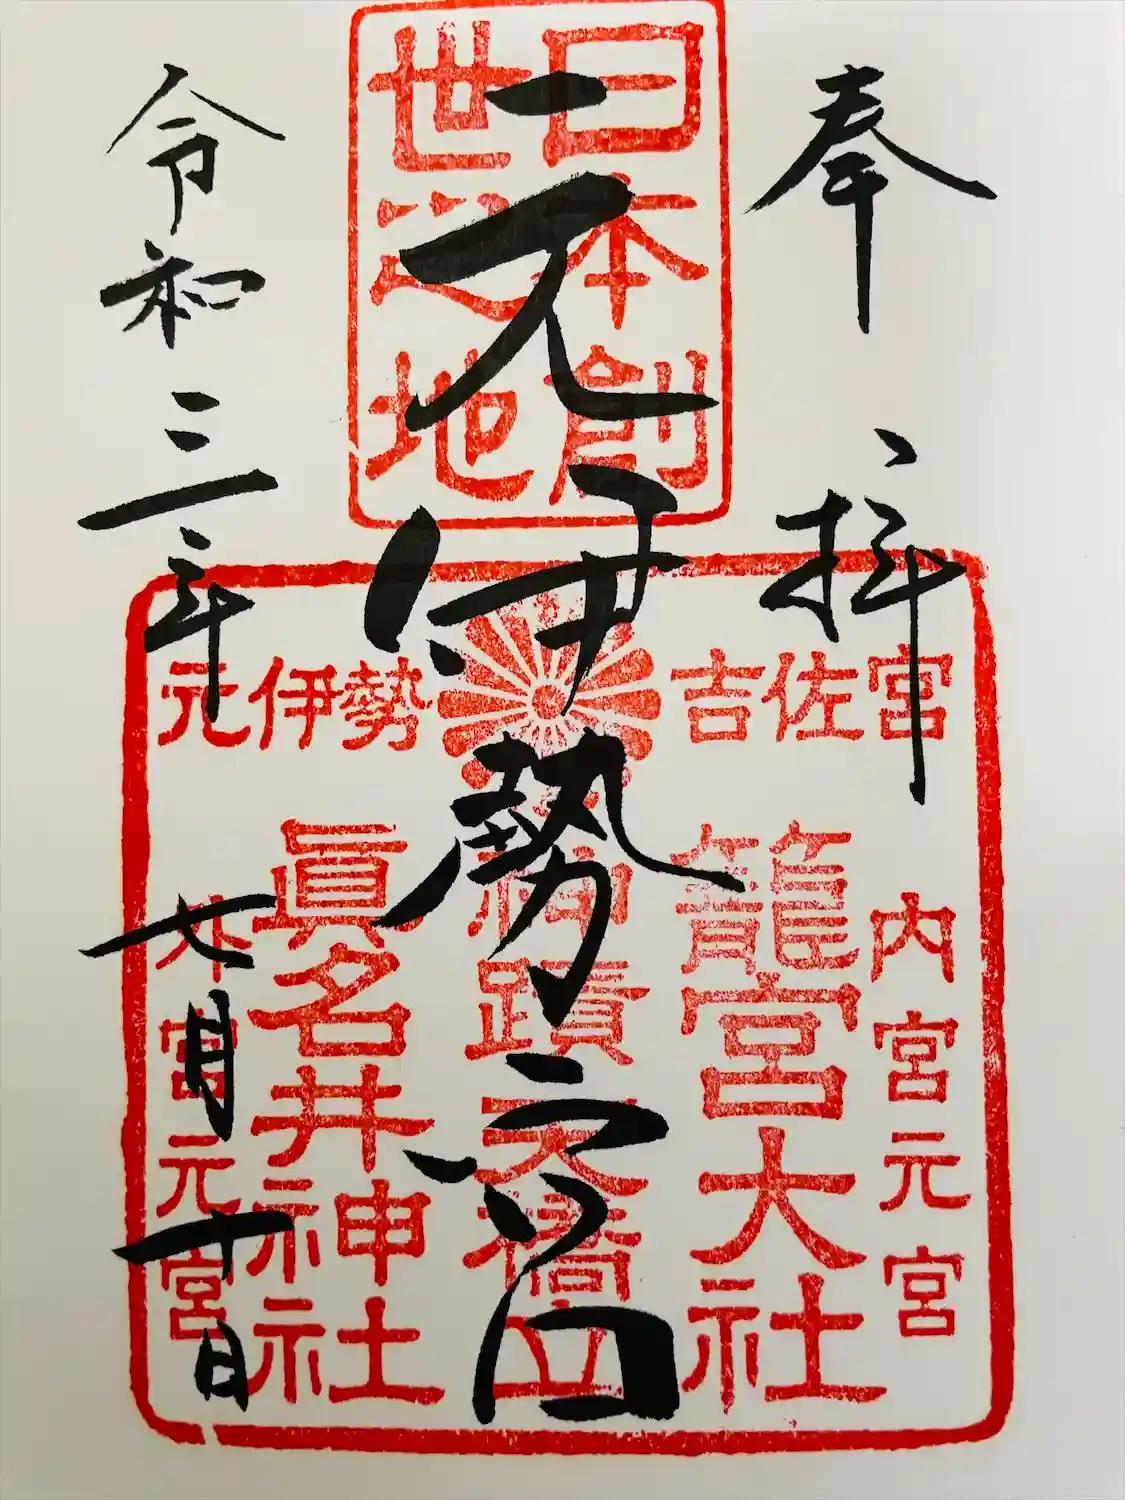 奉拝
元伊勢之宮
令和三年
七月十日
日本創
世之地
元伊勢
吉佐宮
内宮元宮
籠宮大社
神蹟天橋立
眞名井神社
外宮元宮